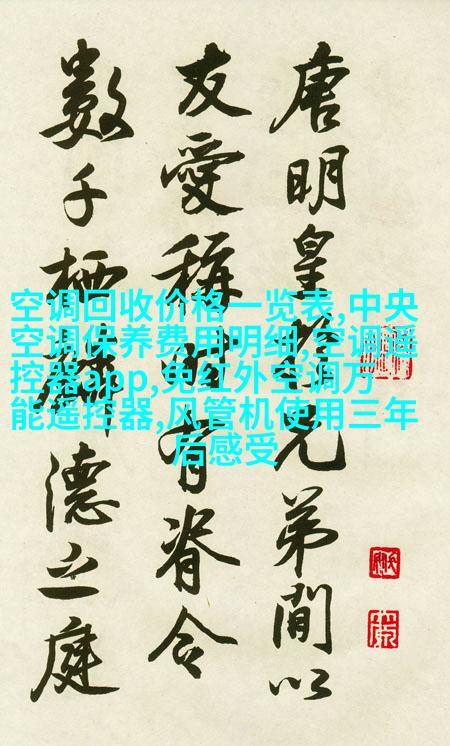 唐明皇於兄弟間以
友愛稱時有脊令
數千栖麟德之庭
空调回收价格一览表,中央
空调保养费用明细,空调遥
控器app,免红外空调万
能遥控器,风管机使用三年
后感受